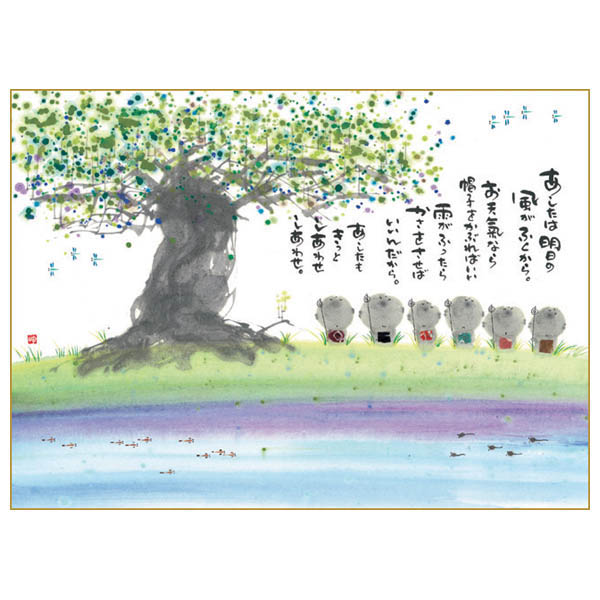 あしたは明日の
風がふくから。
お天氣なら
帽子をかぶればいい
雨がふったら
かさをさせば
いいんだから。
あしたも
きっと
しあわせ
しあわせ。